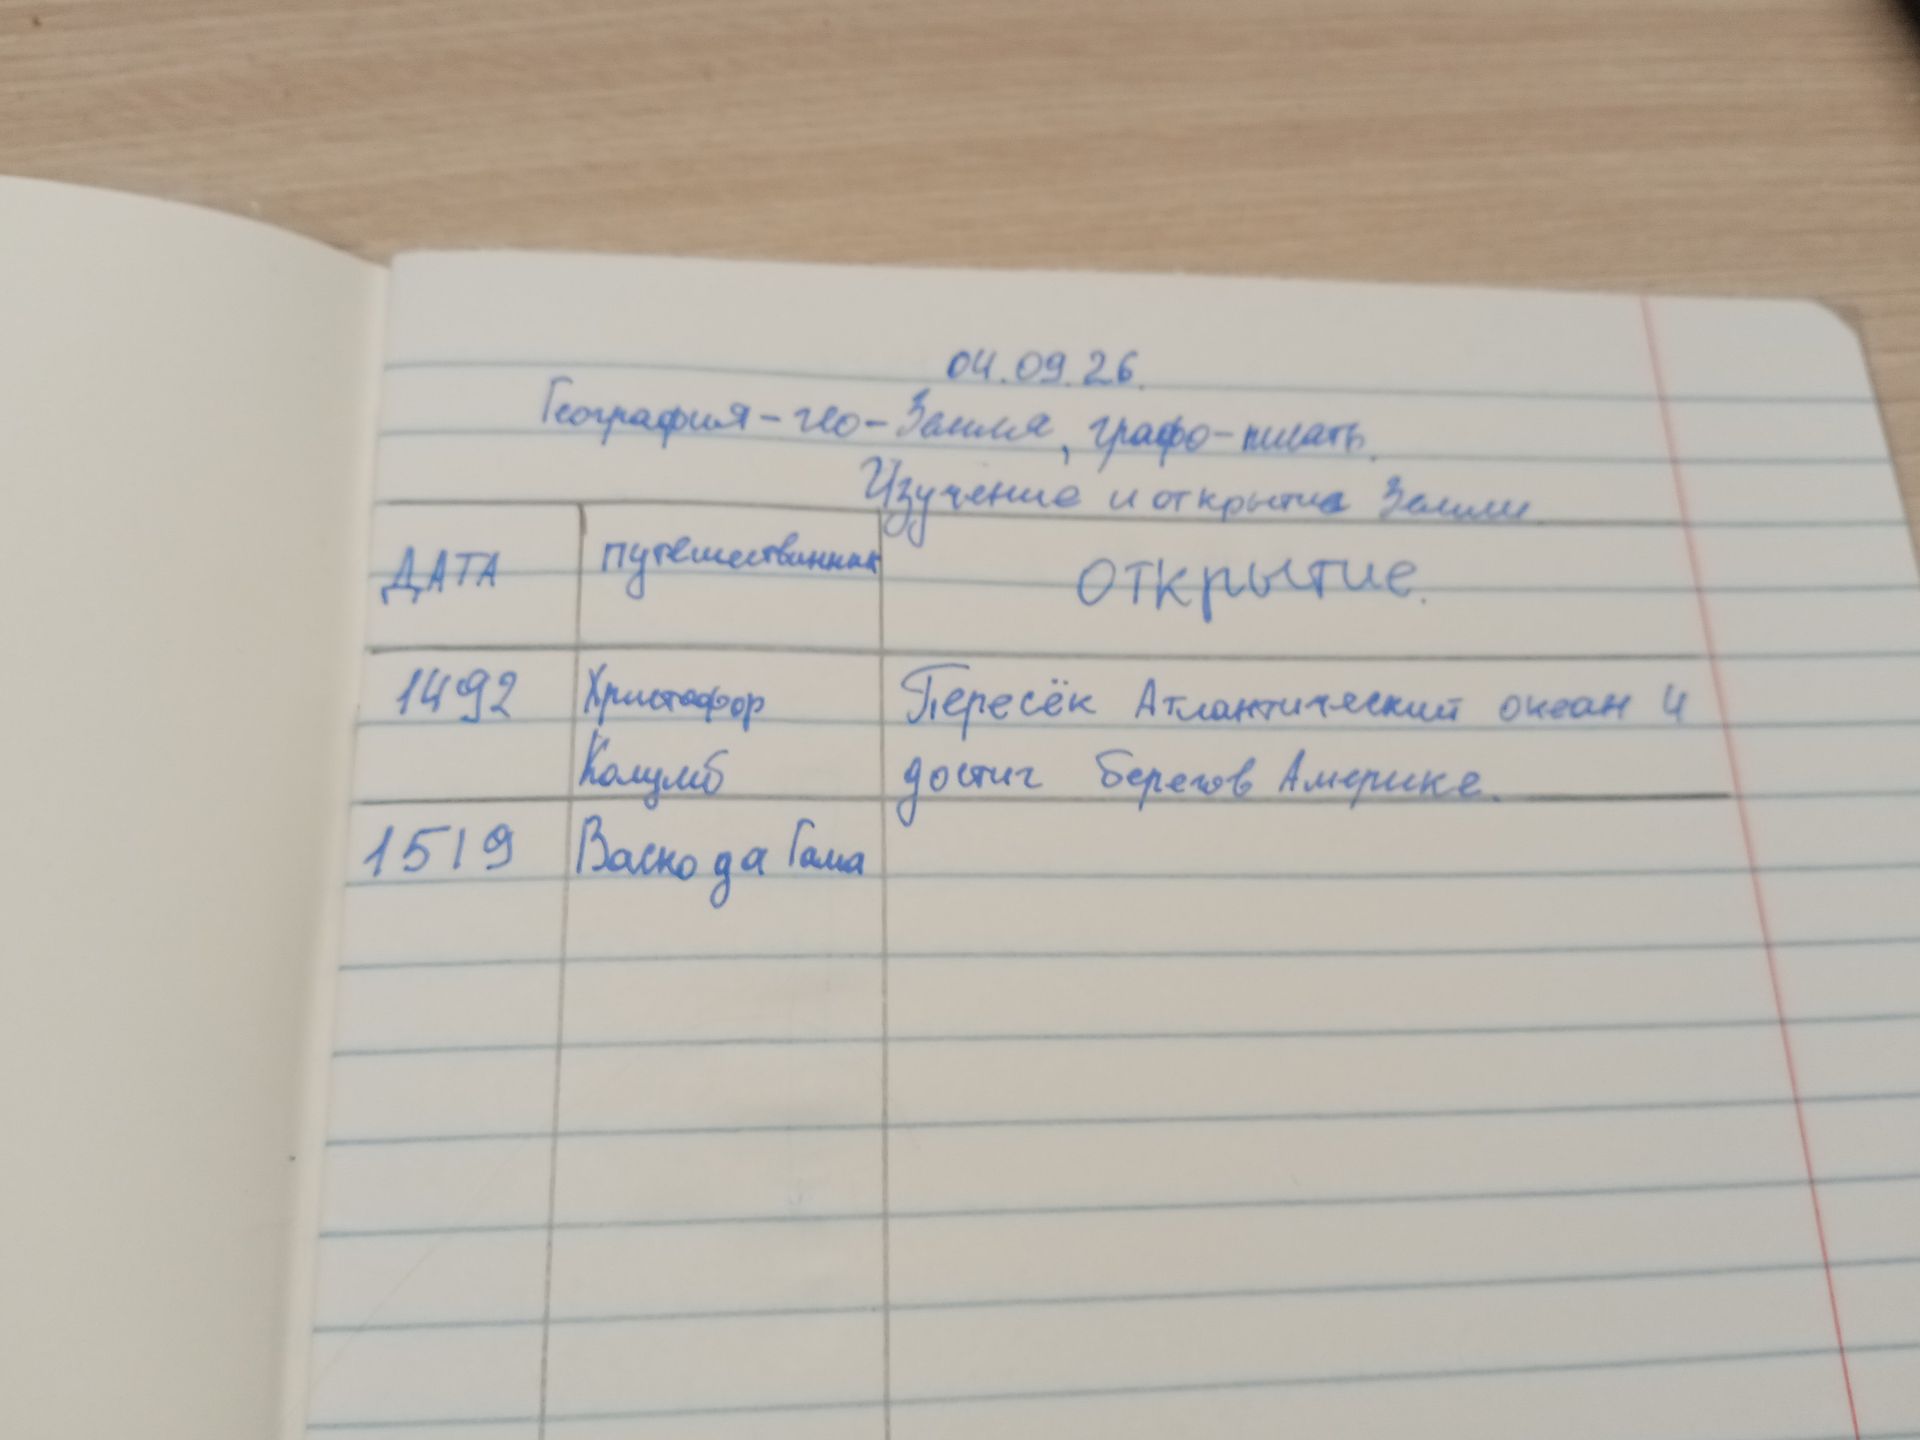 04.09.26.
География - гео - Земля, графо - писать.
Изучение и открытие Земли.
ДАТА путешественник ОТКРЫТИЕ.
1492 Христофор Пересёк Атлантический океан и
Колумб достиг берегов Америке.
1519 Васко да Гама